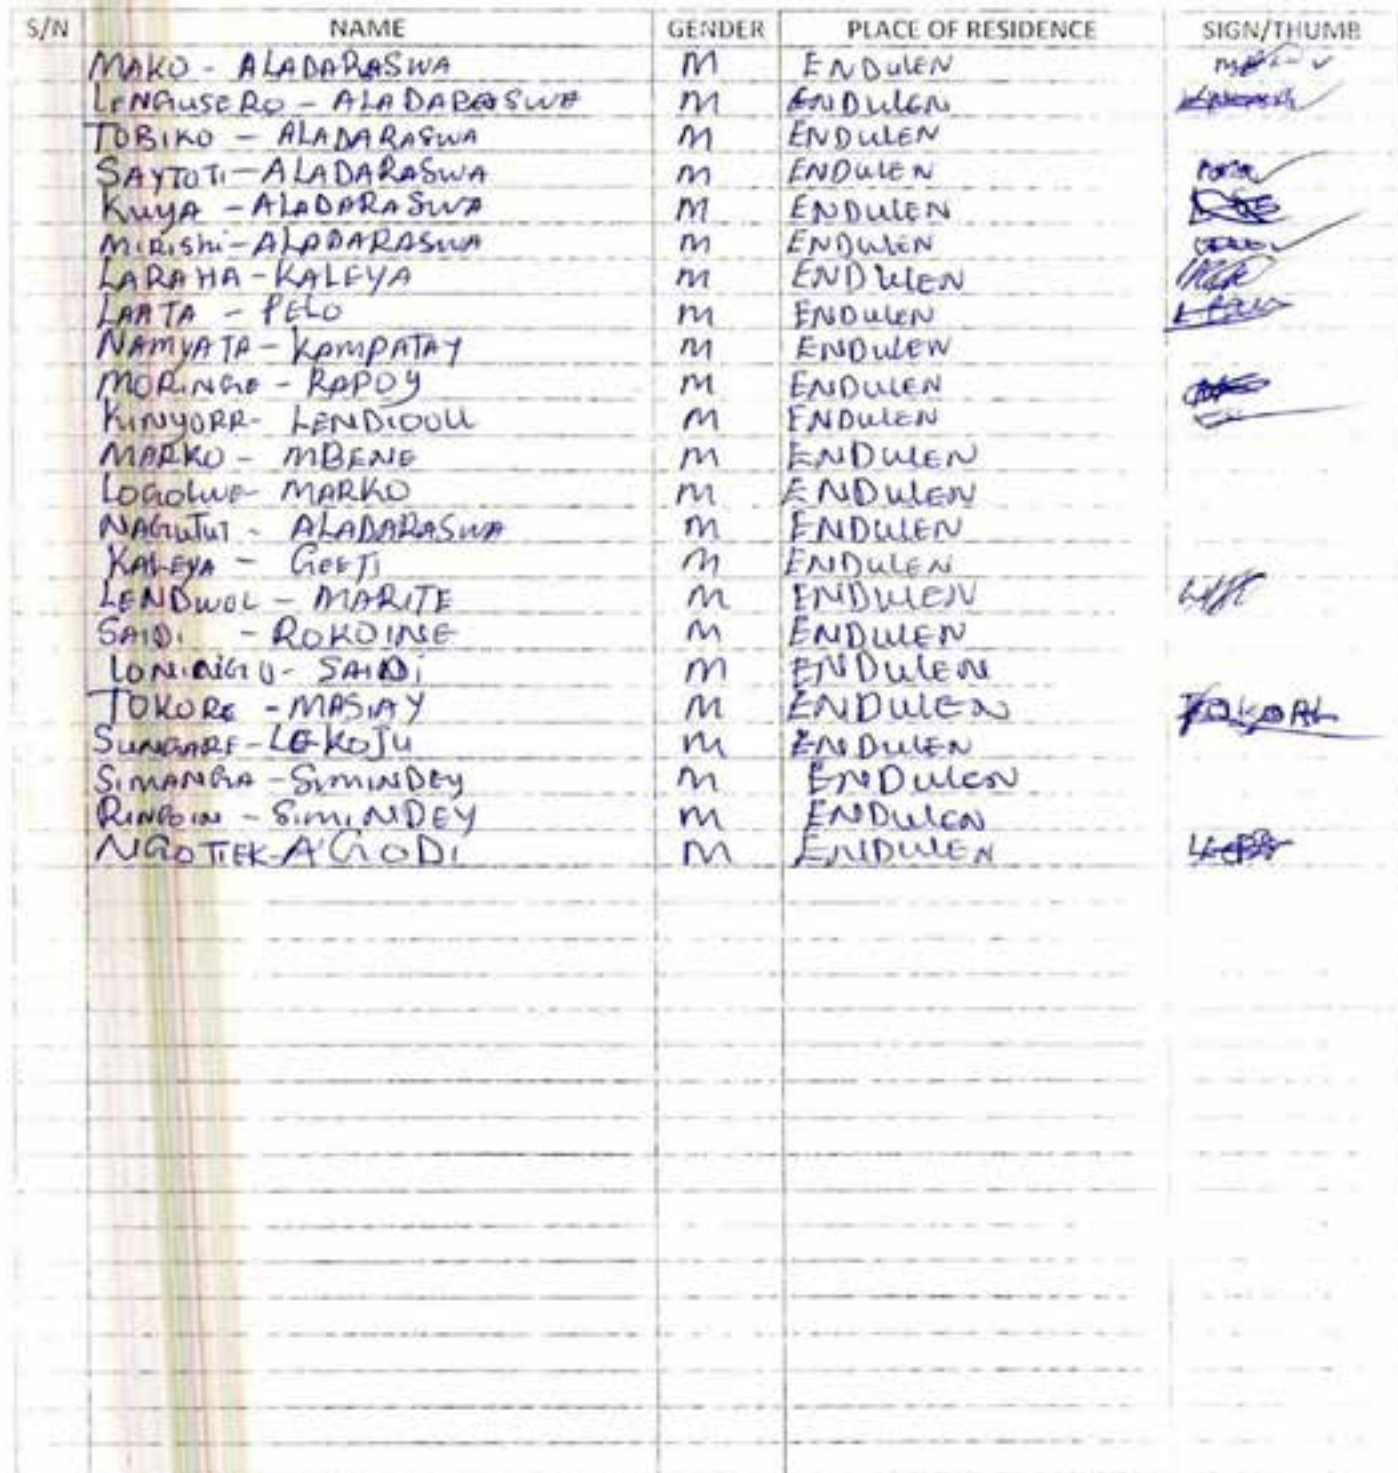 S/N NAME GENDER PLACE OF RESIDENCE SIGN/THUMB
MAKO - ALADARASWA M ENDULEN
LENGUSERO - ALADARASWA M ENDULEN
TOBIKO - ALADARASWA M ENDULEN
SAYTOTI - ALADARASWA M ENDULEN
KUYA - ALADARASWA M ENDULEN
MIRISHI - ALADARASWA M ENDULEN
LARAHA - KALEYA M ENDULEN
LAATA - PELO M ENDULEN
NAMYATA - KAMPATAY M ENDULEN
MORINGE - RAPOY M ENDULEN
KINYORR - LENDIOOLL M ENDULEN
MARKO - MBENE M ENDULEN
LOGOLWE - MARKO M ENDULEN
NAGUTUT - ALADARASWA M ENDULEN
KALEYA - GEETI M ENDULEN
LENDWOL - MARITE M ENDULEN
SAIDI - ROKOINE M ENDULEN
LONINGU - SAIDI M ENDULEN
TOKORE - MASIAY M ENDULEN TOKORE
SUNGARE - LEKOJU M ENDULEN
SIMANGA - SIMINDEY M ENDULEN
SIMINDEY M ENDULEN
NGOTIEK - A'GODI M ENDULEN